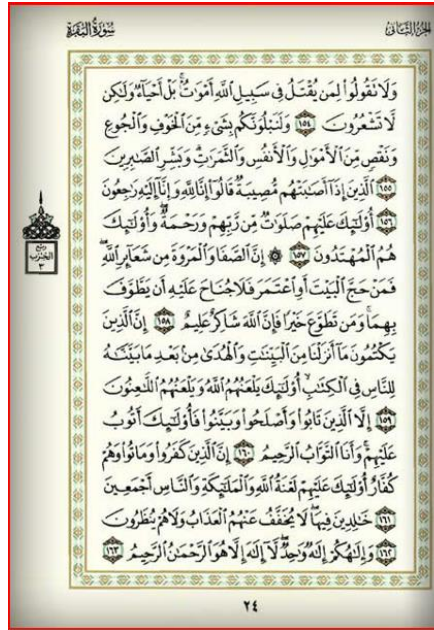 سُورَةُ البَقَرَةِ الجزءُ الثَّانِي
وَلَا تَقُولُوا۟ لِمَن يُقْتَلُ فِى سَبِيلِ ٱللَّهِ أَمْوَٰتٌۢ ۚ بَلْ أَحْيَآءٌ وَلَٰكِن
لَّا تَشْعُرُونَ ١٥٤ وَلَنَبْلُوَنَّكُم بِشَىْءٍ مِّنَ ٱلْخَوْفِ وَٱلْجُوعِ
وَنَقْصٍ مِّنَ ٱلْأَمْوَٰلِ وَٱلْأَنفُسِ وَٱلثَّمَرَٰتِ ۗ وَبَشِّرِ ٱلصَّٰبِرِينَ
١٥٥ ٱلَّذِينَ إِذَآ أَصَٰبَتْهُم مُّصِيبَةٌ قَالُوٓا۟ إِنَّا لِلَّهِ وَإِنَّآ إِلَيْهِ رَٰجِعُونَ
١٥٦ أُو۟لَٰٓئِكَ عَلَيْهِمْ صَلَوَٰتٌ مِّن رَّبِّهِمْ وَرَحْمَةٌ ۖ وَأُو۟لَٰٓئِكَ
هُمُ ٱلْمُهْتَدُونَ ١٥٧ ۞ إِنَّ ٱلصَّفَا وَٱلْمَرْوَةَ مِن شَعَآئِرِ ٱللَّهِ ۖ
فَمَنْ حَجَّ ٱلْبَيْتَ أَوِ ٱعْتَمَرَ فَلَا جُنَاحَ عَلَيْهِ أَن يَطَّوَّفَ
بِهِمَا ۚ وَمَن تَطَوَّعَ خَيْرًا فَإِنَّ ٱللَّهَ شَاكِرٌ عَلِيمٌ ١٥٨ إِنَّ ٱلَّذِينَ
يَكْتُمُونَ مَآ أَنزَلْنَا مِنَ ٱلْبَيِّنَٰتِ وَٱلْهُدَىٰ مِنۢ بَعْدِ مَا بَيَّنَّٰهُ
لِلنَّاسِ فِى ٱلْكِتَٰبِ ۙ أُو۟لَٰٓئِكَ يَلْعَنُهُمُ ٱللَّهُ وَيَلْعَنُهُمُ ٱللَّٰعِنُونَ
١٥٩ إِلَّا ٱلَّذِينَ تَابُوا۟ وَأَصْلَحُوا۟ وَبَيَّنُوا۟ فَأُو۟لَٰٓئِكَ أَتُوبُ
عَلَيْهِمْ ۚ وَأَنَا ٱلتَّوَّابُ ٱلرَّحِيمُ ١٦٠ إِنَّ ٱلَّذِينَ كَفَرُوا۟ وَمَاتُوا۟ وَهُمْ
كُفَّارٌ أُو۟لَٰٓئِكَ عَلَيْهِمْ لَعْنَةُ ٱللَّهِ وَٱلْمَلَٰٓئِكَةِ وَٱلنَّاسِ أَجْمَعِينَ
١٦١ خَٰلِدِينَ فِيهَا ۖ لَا يُخَفَّفُ عَنْهُمُ ٱلْعَذَابُ وَلَا هُمْ يُنظَرُونَ
١٦٢ وَإِلَٰهُكُمْ إِلَٰهٌ وَٰحِدٌ ۖ لَّآ إِلَٰهَ إِلَّا هُوَ ٱلرَّحْمَٰنُ ٱلرَّحِيمُ ١٦٣
ربع
الحزب
٣
٢٤